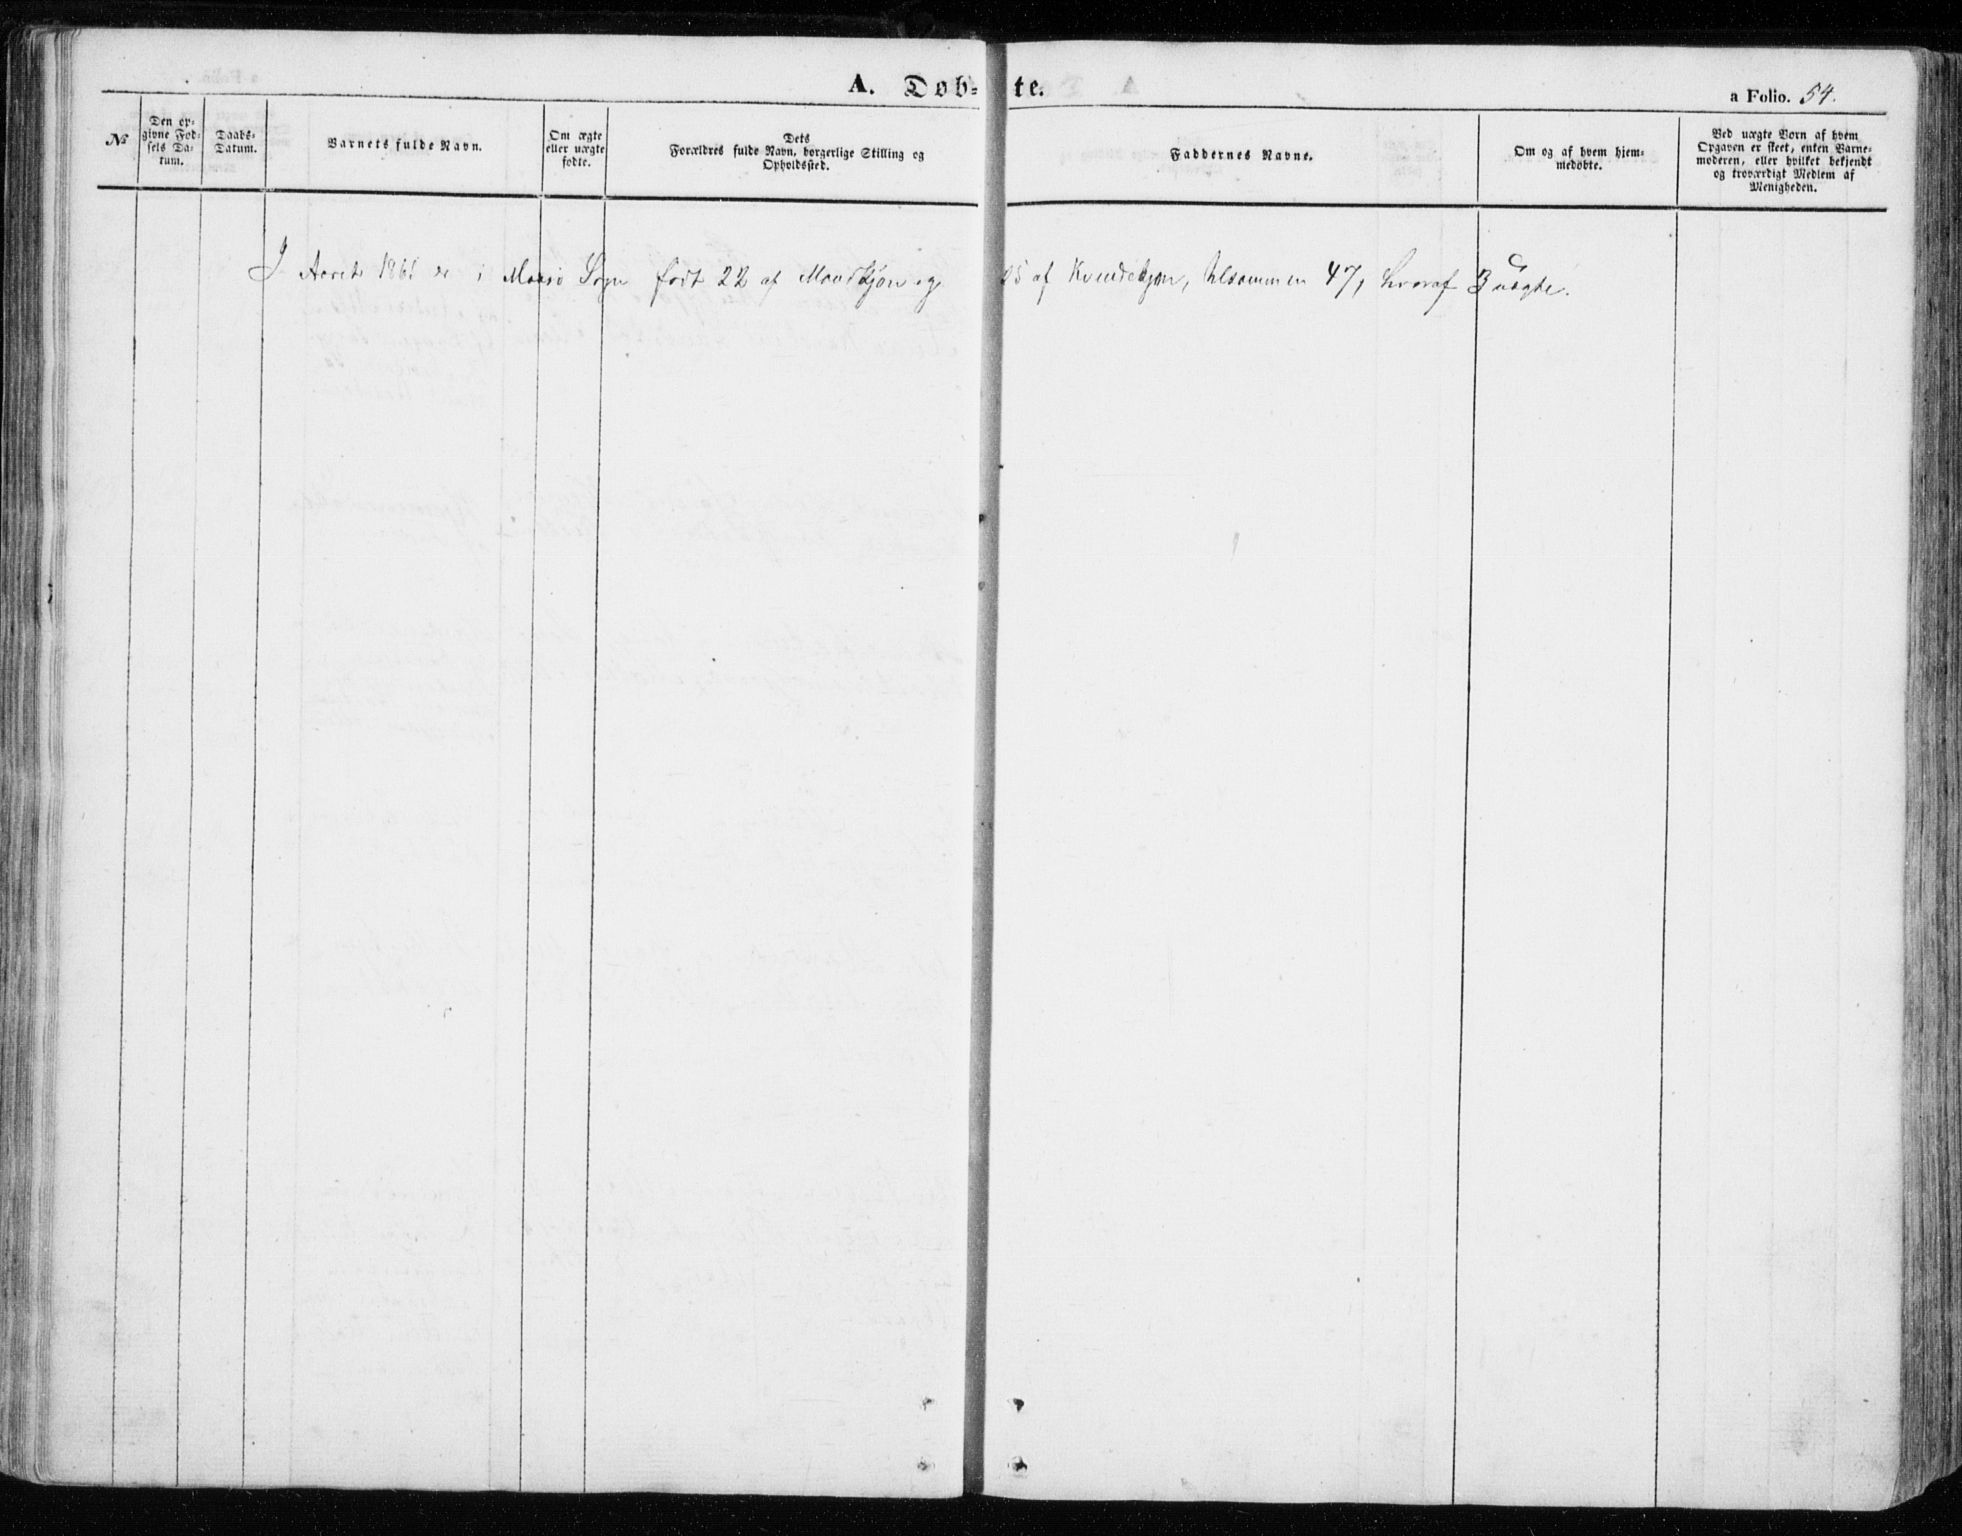 A. Døb- te.
a Folio. 54.
No
Den op-
givne Fød-
sels Da-
tum.
Daabs-
Datum.
Barnets fulde Navn.
Om ægte
eller uægte
fødte.
Dets
Forældres fulde Navn, borgerlige Stilling og
Opholdssted.
Faddernes Navne.
Om og af hvem hjem-
medøbte.
Ved uægte Børn af hvem
Opgaven er skeet, enten Barne-
moderen, eller hvilket bekjendt
og troværdigt Medlem af
Menigheden.
I Aaret 1861 er i Maasø Sogn født 22 af Mandkjøn og 25 af Kvindekjøn, tilsammen 47, hvoraf 3 uægte.